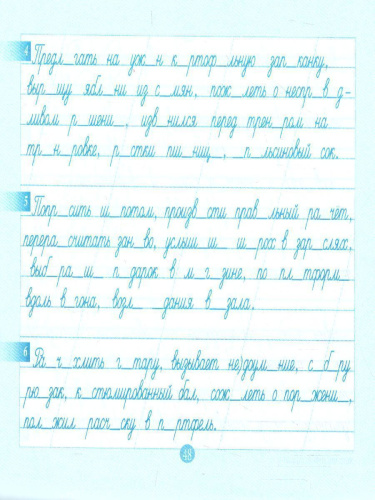 4 Предл_гать на уж_н к_ртоф_льную зап_канку,
выр_щу ябл_ни из с_мян, пож_леть о неспр_в_д-
ливом р_шени_, изв_нился перед трен_ром на
тр_н_ровке, р_стки пш_ниц_, _п_льсиновый сок.
5 Попр_сить ш_потом, произв_сти прав_льный ра_чёт,
перера_считать зан_во, услыш_ш_ш_рох в зар_слях,
выб_ра_ш_п_дарок в м_г_зине, по пл_тформ_
вдоль в_гона, возл_ _дания в_зала.
6 Ра_ч_хлить г_тару, вызывает не)доум_ние, с_б_ру
рю_зак, к_стюмированный бал, сож_леть о пор_жени_,
пол_жил расч_ску в п_ртфель.
48